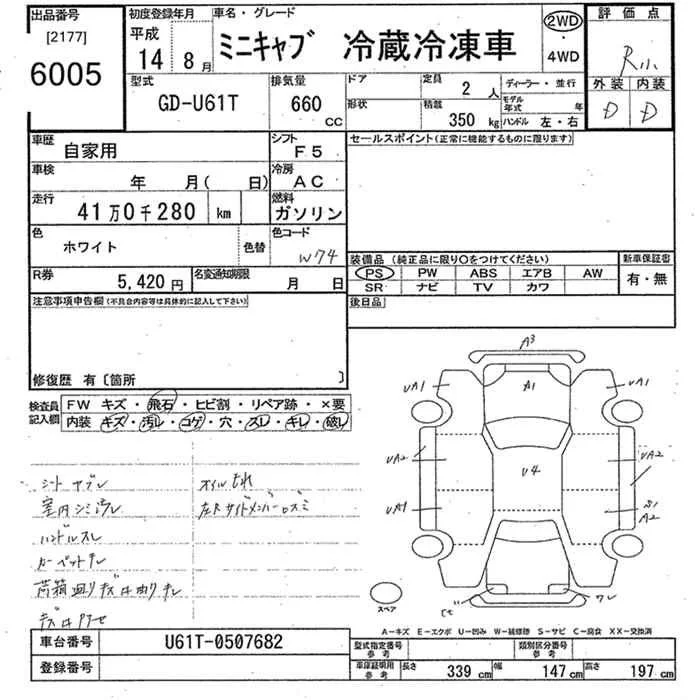 出品番号 初度登録年月 車名・グレード 2WD・4WD 評価点
[2177] 平成 ミニキャブ 冷蔵冷凍車
6005 14年 8月
外装 内装
D D
型式 排気量 ドア 定員 2人 ディーラー・並行
GD-U61T 660cc 形状 積載 350kg モデル年式 年
ハンドル 左・右
車歴 自家用 シフト F5 セールスポイント(正常に機能するものに限ります)
車検 年 月( 日) 冷房 AC
走行 41万0千280 km 燃料 ガソリン
色 ホワイト 色替 色コード W74
装備品 (純正品に限り○をつけてください) 新車保証書
PS PW ABS エアB AW 有・無
SR ナビ TV カワ
R券 5,420円 名変通知期限 月 日
後日品
注意事項申告欄(不具合内容等は具体的に記入して下さい)
修復歴 有〔箇所 〕
検査員記入欄 FW キズ・飛石・ヒビ割・リペア跡・×要
内装 キズ・汚レ・コゲ・穴・スレ・キレ・破レ
シートヤブレ オイルもれ
室内シミ汚レ 左右サイドメンバーロズミ
ハンドルスレ
カーペットキレ
A3
UA1 A1 UA1
UA2 U4 UA2
UA1 A2
ワレ
スペア
A−キズ E−エクボ U−凹み W−補修跡 S−サビ C−腐食 XX−交換済
車台番号 U61T-0507682 型式指定番号 参考 類別区分番号 参考
登録番号 車庫証明用 参考 長さ 339cm 幅 147cm 高さ 197cm